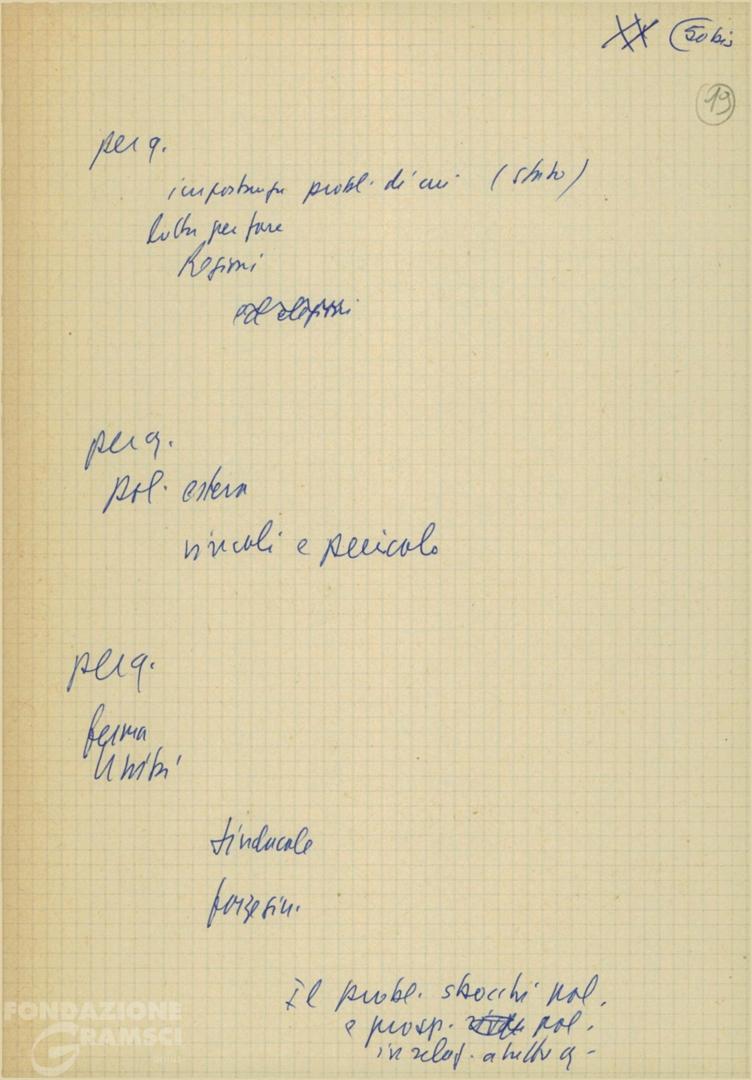 50 bis
19
per q.
importanza probl. di cui (stato)
lotta per fare
Regioni
per q.
pol. estera
vincoli e pericolo
per q.
forma
Unità
sindacale
forze sin.
Il probl. sbocchi pol.
e prosp. pol.
in relaz. a tutto q-
FONDAZIONE
GRAMSCI